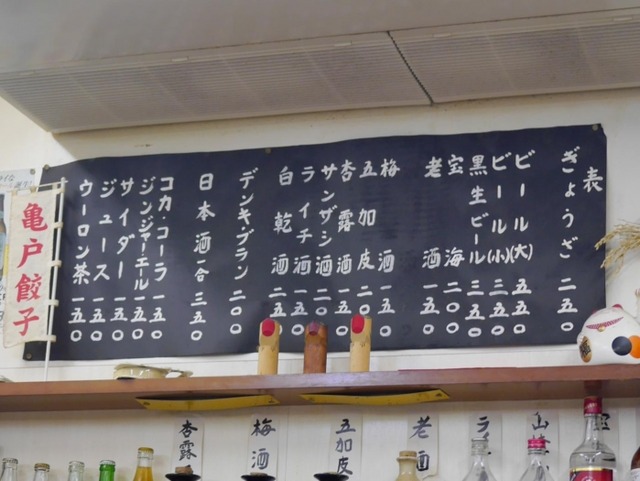 表
ぎょうざ 二五〇
ビール(大) 五五〇
ビール(小) 三五〇
黒生ビール 三五〇
宝海 二〇〇
老酒 一五〇
梅酒 一五〇
五加皮
杏露酒 一五〇
サンザシ酒
ライチ酒 一五〇
白乾酒 二五〇
デンキ・ブラン 二〇〇
日本酒一合 三五〇
コカ・コーラ 一五〇
ジンジャーエール 一五〇
サイダー 一五〇
ジュース 一五〇
ウーロン茶 一五〇
亀戸餃子
老酒
五加皮
梅酒
杏露